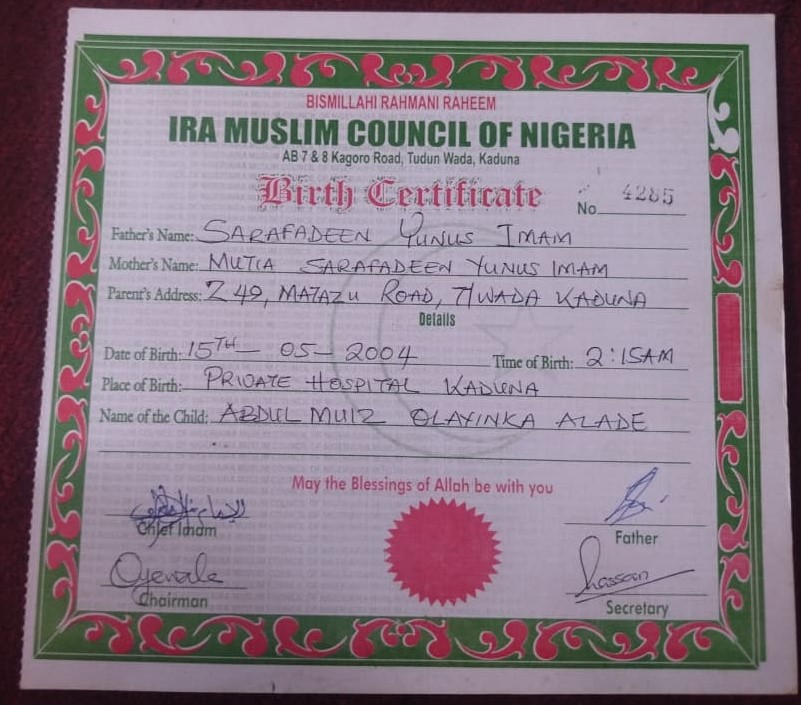 BISMILLAHI RAHMANI RAHEEM
IRA MUSLIM COUNCIL OF NIGERIA
AB 7 & 8 Kagoro Road, Tudun Wada, Kaduna
Birth Certificate
No 4285
Father's Name: SARAFADEEN YUNUS IMAM
Mother's Name: MUTIA SARAFADEEN YUNUS IMAM
Parent's Address: Z 49, MATAZU ROAD, T/WADA KADUNA
Details
Date of Birth: 15TH - 05 - 2004 Time of Birth: 2:15AM
Place of Birth: PRIVATE HOSPITAL KADUNA
Name of the Child: ABDUL MUIZ OLAYINKA ALADE
May the Blessings of Allah be with you
Chief Imam
Father
Chairman
Hassan
Secretary